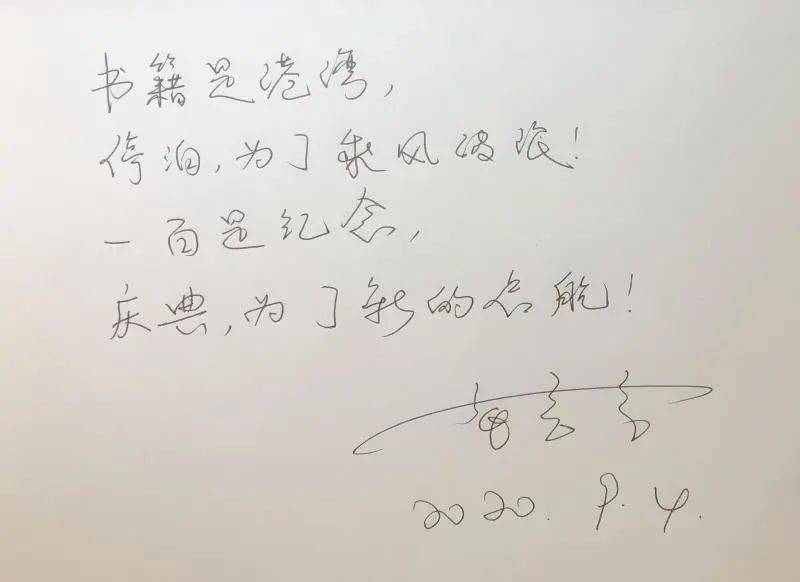 书籍是港湾,
停泊,为了乘风破浪!
一百是纪念,
庆典,为了新的启航!
2020.9.4.